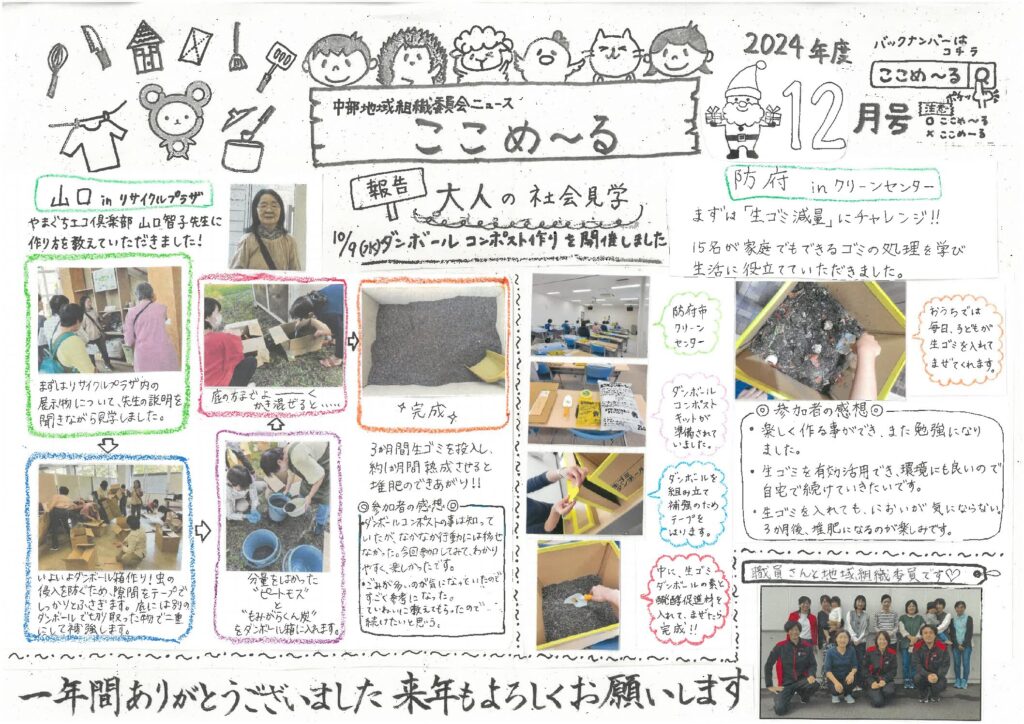 中部地域組織委員会ニュース
ここめ〜る
2024年度
12月号
バックナンバーは
コチラ
ここめ〜る
ポチッ
注意
○ここめ〜る
×ここめーる
山口 in リサイクルプラザ
やまぐちエコ倶楽部 山口智子先生に
作り方を教えていただきました!
まずはリサイクルプラザ内の
展示物について、先生の説明を
聞きながら見学しました。
いよいよダンボール箱作り!虫の
侵入を防ぐため、隙間をテープで
しっかりとふさぎます。底には別の
ダンボールで切り取った物で二重
にして補強します。
分量をはかった
"ピートモス"
と
"もみがらくん炭"
をダンボール箱に入れます。
庭の方までよーーく
かき混ぜると……
完成
3か月間生ゴミを投入し、
約1か月間熟成させると
堆肥のできあがり!!
◎参加者の感想◎
・ダンボールコンポストの事は知って
いたが、なかなか行動には移せ
なかった。今回参加してみて、わかり
やすく、楽しかったです。
・ごみが多いのが気になっていたので
すごく参考になった。
ていねいに教えてもらったので
続けたいと思う。
報告
大人の社会見学
10/9(水)ダンボールコンポスト作りを開催しました
防府 in クリーンセンター
まずは「生ゴミ減量」にチャレンジ!!
15名が家庭でもできるゴミの処理を学び
生活に役立てていただきました。
防府市
クリーン
センター
ダンボール
コンポスト
キットが
準備されて
いました。
ダンボールを
組み立て
補強のため
テープを
はります。
中に、生ゴミ
ダンボールの素と
醗酵促進材を
入れて、まぜたら
完成!!
おうちでは
毎日、子どもが
生ゴミを入れて
まぜてくれます。
◎参加者の感想◎
・楽しく作る事ができ、また勉強になり
ました。
・生ゴミを有効活用でき、環境にも良いので
自宅で続けていきたいです。
・生ゴミを入れても、においが気にならない。
3か月後、堆肥になるのが楽しみです。
職員さんと地域組織委員です♡
一年間ありがとうございました 来年もよろしくお願いします